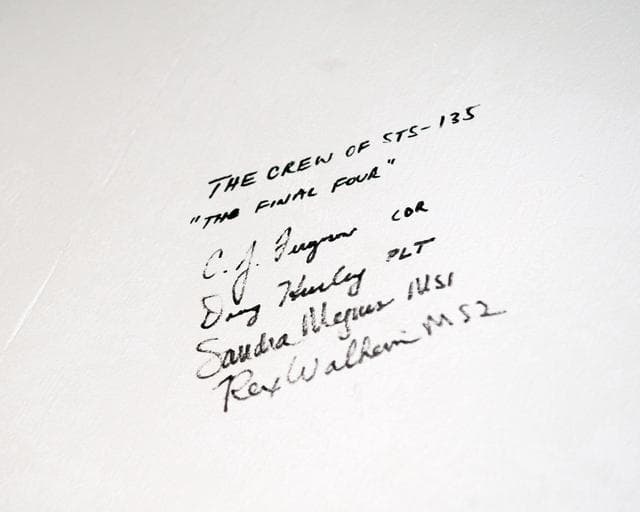 THE CREW OF STS-135
"THE FINAL FOUR"
C. J. Ferguson CDR
Doug Hurley PLT
Sandra Magnus MS1
Rex Walheim MS2